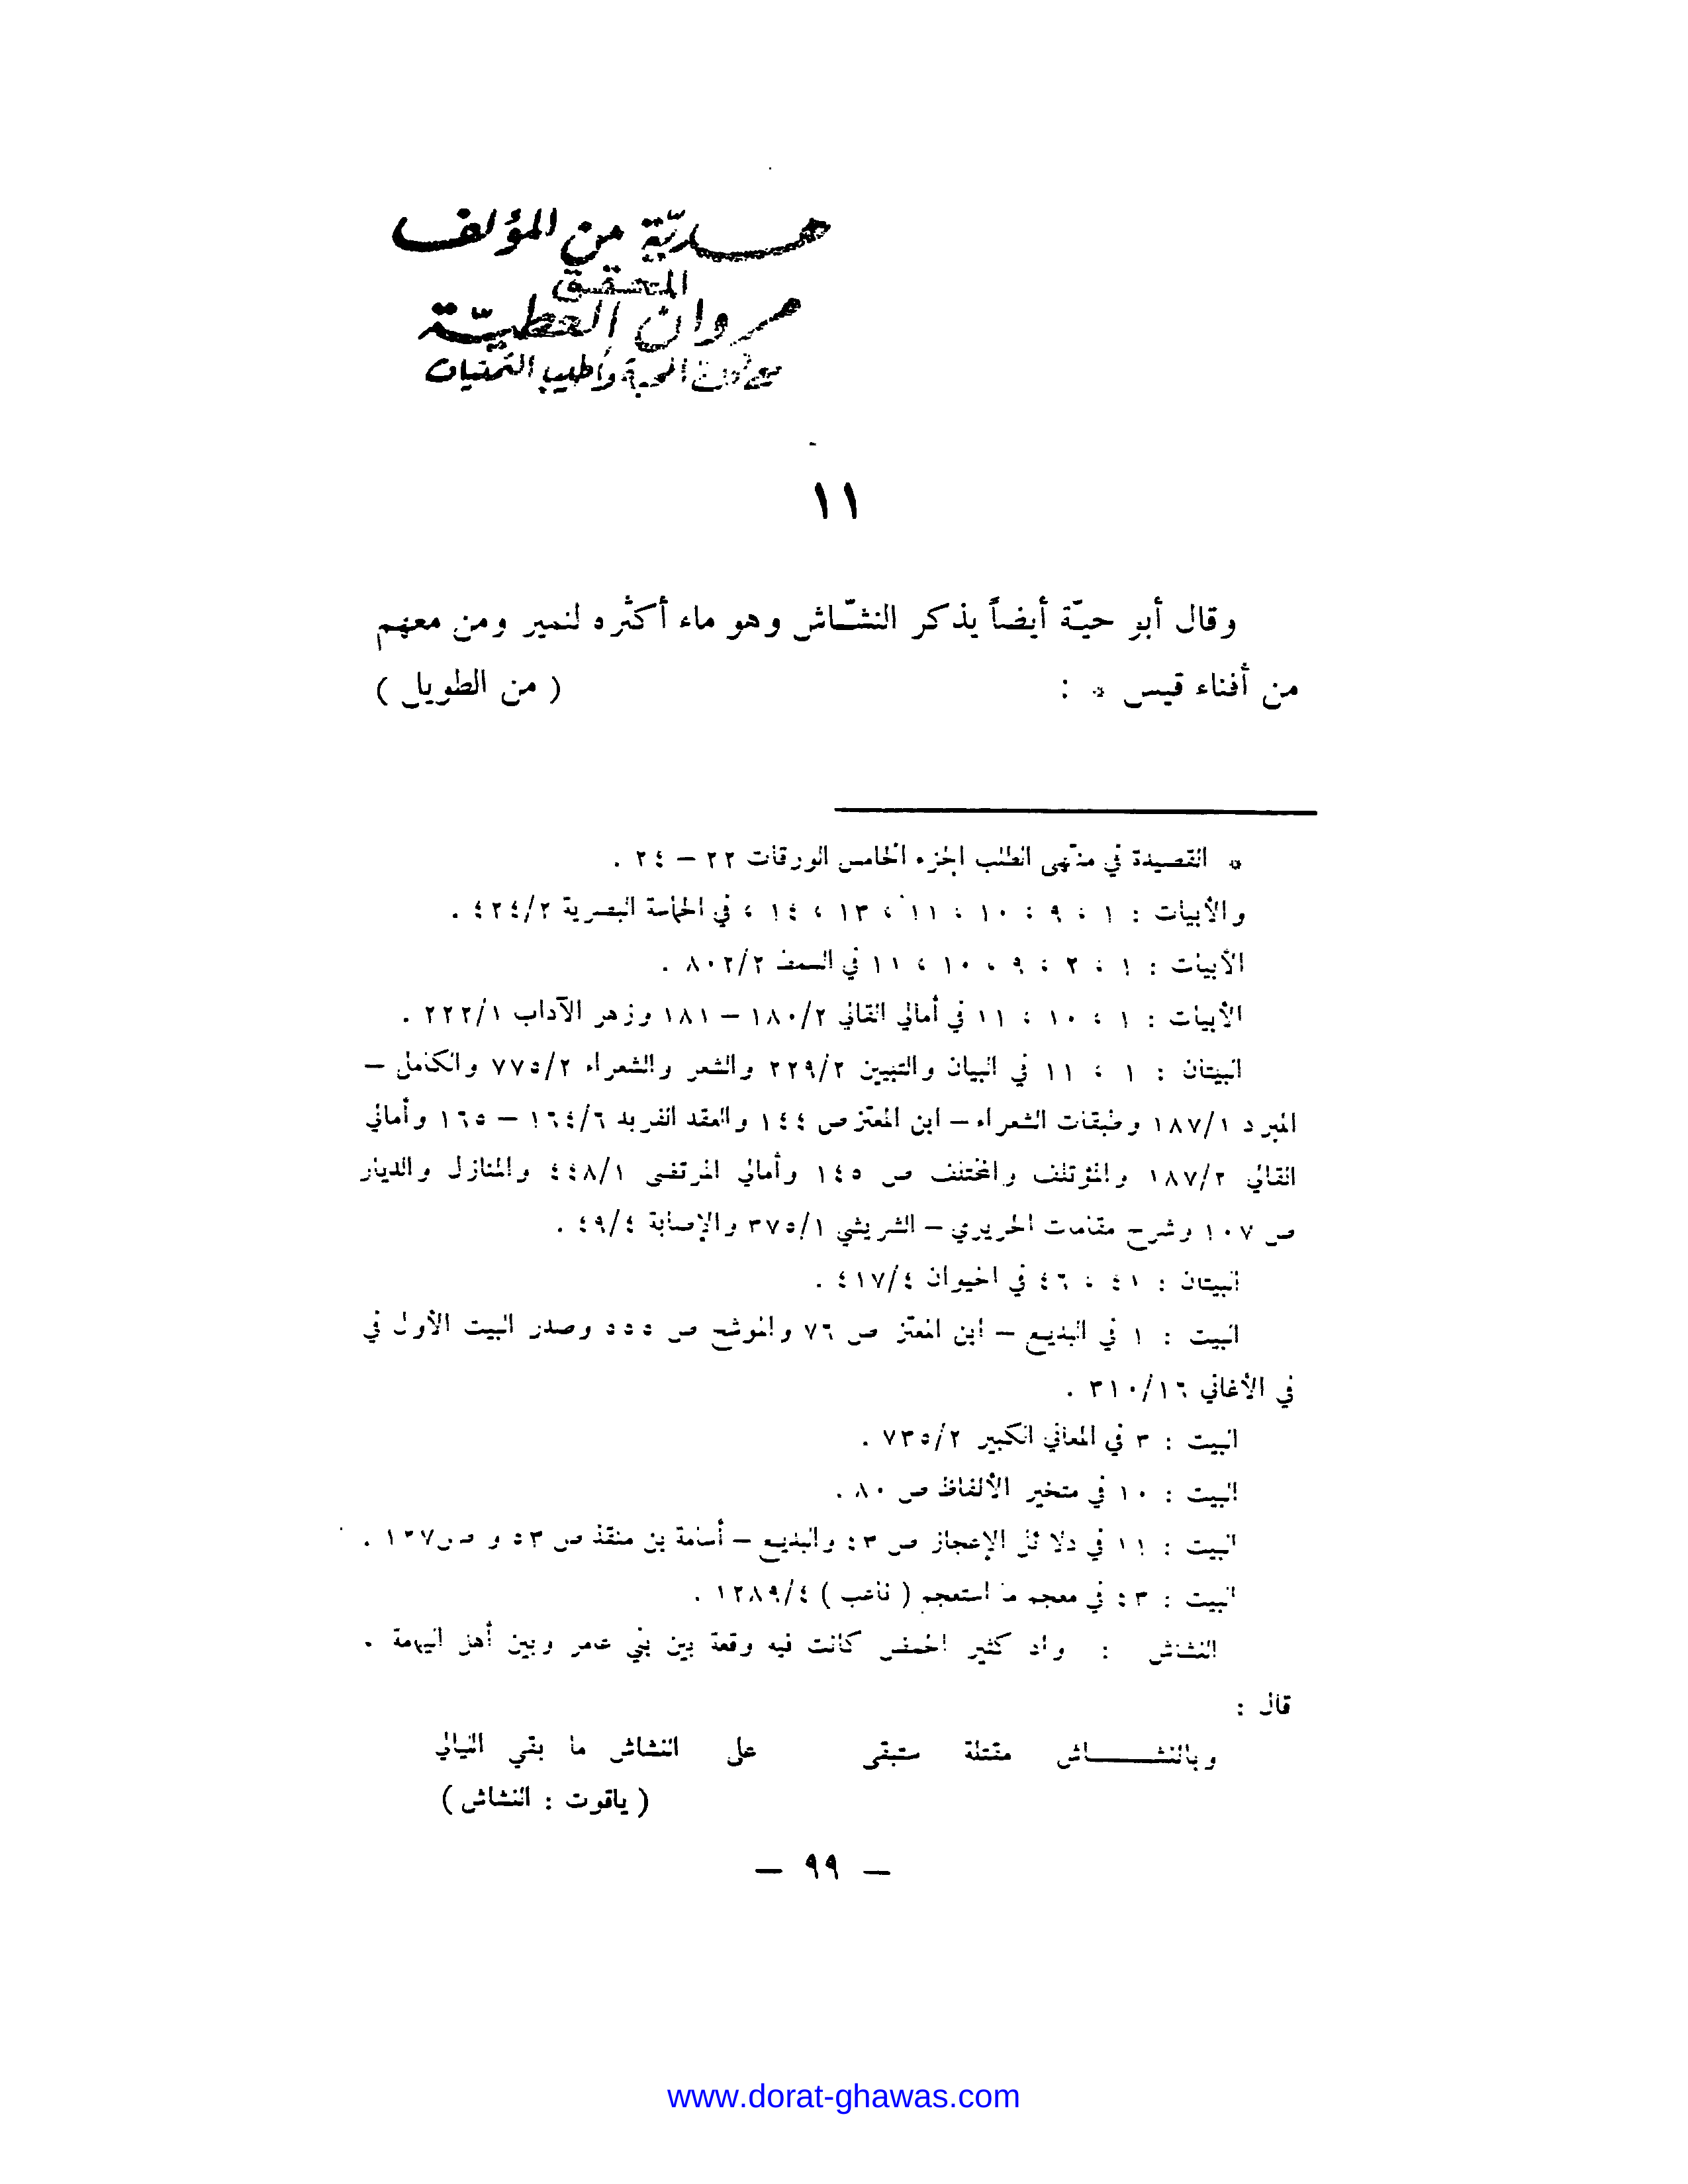 هديّة من المؤلف
المحقق
مروان العطيّة
مع المحبة وأطيب التمنيات
١١
وقال أبو حيّة أيضاً يذكر النشّاش وهو ماء أكثره لنمير ومن معهم
من أفناء قيس * : ( من الطويل )
* القصيدة في منتهى الطلب الجزء الخامس الورقات ٢٢ – ٢٤ .
والأبيات : ١ ، ٩ ، ١٠ ، ١١ ، ١٣ ، ١٤ ، في الحماسة البصرية ٤٢٤/٢ .
الأبيات : ١ ، ٢ ، ٩ ، ١٠ ، ١١ في السمط ٨٠٢/٢ .
الأبيات : ١ ، ١٠ ، ١١ في أمالي القالي ١٨٠/٢ – ١٨١ وزهر الآداب ٢٢٢/١ .
البيتان : ١ ، ١١ في البيان والتبيين ٢٢٩/٢ والشعر والشعراء ٧٧٥/٢ والكامل –
المبرد ١٨٧/١ وطبقات الشعراء – ابن المعتز ص ١٤٤ والعقد الفريد ١٦٤/٦ – ١٦٥ وأمالي
القالي ١٨٧/٢ والمؤتلف والمختلف ص ١٤٥ وأمالي المرتضى ٤٤٨/١ والمنازل والديار
ص ١٠٧ وشرح مقامات الحريري – الشريشي ٣٧٥/١ والإصابة ٤٩/٤ .
البيتان : ٤١ ، ٤٦ في الحيوان ٤١٧/٤ .
البيت : ١ في البديع – ابن المعتز ص ٧٦ والموشح ص ٥٥٥ وصدر البيت الأول في
في الأغاني ٣١٠/١٦ .
البيت : ٣ في المعاني الكبير ٧٣٥/٢ .
البيت : ١٠ في متخير الألفاظ ص ٨٠ .
البيت : ١١ في دلائل الإعجاز ص ٤٣ والبديع – أسامة بن منقذ ص ٥٣ و ص ١٣٧ .
البيت : ٤٣ في معجم ما استعجم ( ناعب ) ١٢٨٩/٤ .
النشاش : واد كثير الحمض كانت فيه وقعة بين بني عامر وبين أهل اليمامة .
قال :
وبالنشاش مقتلة ستبقى على النشاش ما بقي الليالي
( ياقوت : النشاش )
– ٩٩ –
www.dorat-ghawas.com